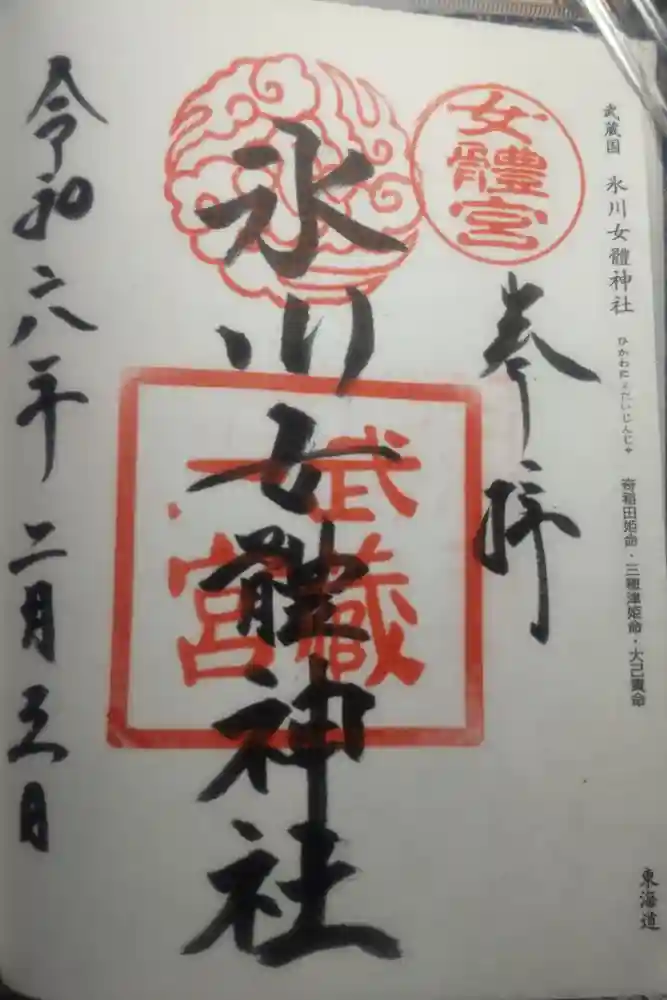 武蔵国 氷川女體神社 ひかわにょたいじんじゃ 奇稲田姫命・三穂津姫命・大己貴命 東海道
女體宮
奉拝
氷川女體神社
武藏
一宮
令和六年二月五日